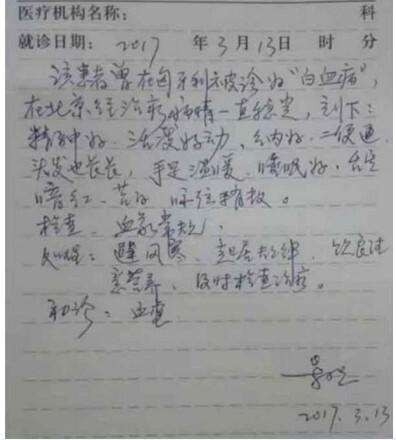 医疗机构名称： 科
就诊日期：2017 年3月13日 时 分
该患者曾在匈牙利被诊为"白血病"，
在北京经治疗病情一直稳定，刻下：
精神好、活泼好动、纳好、二便通
头发也长长，手足温暖、睡眠好、舌
暗红、苔 脉弦稍数。
检查：血象
处理：避风寒、起居 饮食
营养、及时检查治疗。
初诊：血
2017.3.13